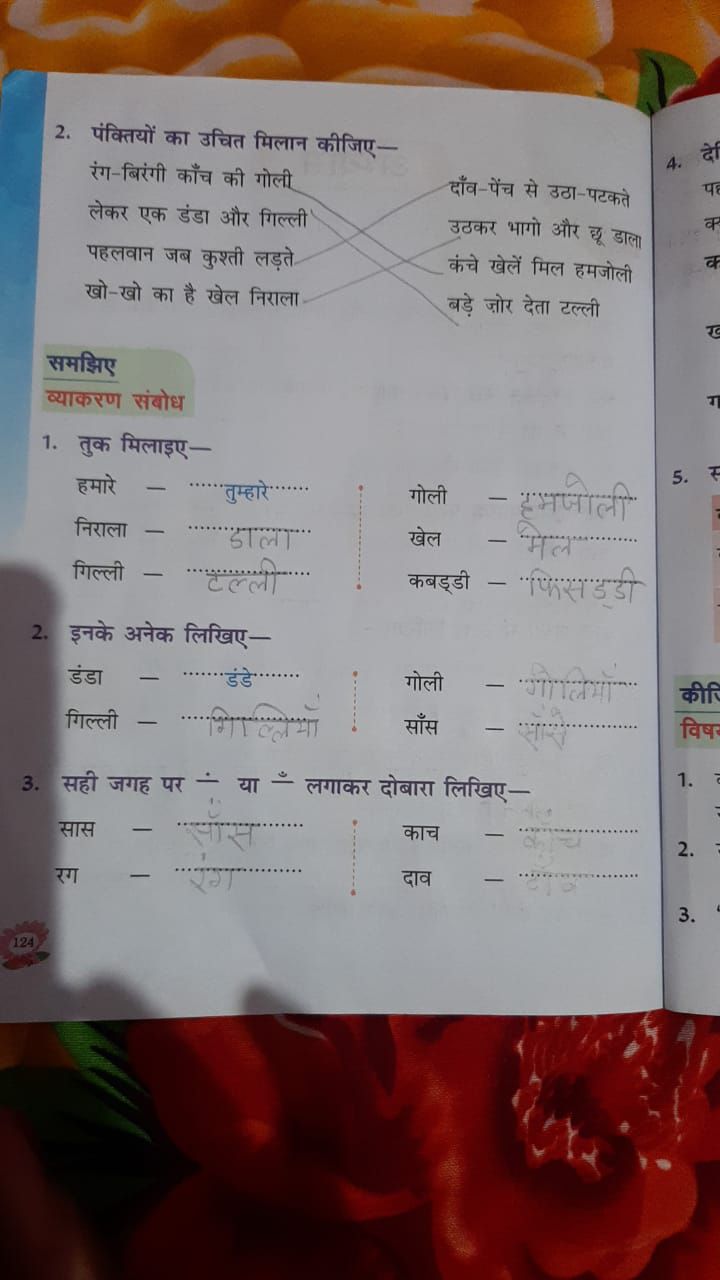 2. पंक्तियों का उचित मिलान कीजिए—
रंग-बिरंगी काँच की गोली
दाँव-पेंच से उठा-पटकते
लेकर एक डंडा और गिल्ली
उठकर भागो और छू डाला
पहलवान जब कुश्ती लड़ते
कंचे खेलें मिल हमजोली
खो-खो का है खेल निराला
बड़े ज़ोर देता टल्ली
समझिए
व्याकरण संबोध
1. तुक मिलाइए—
हमारे — तुम्हारे
गोली — हमजोली
निराला — डाला
खेल — मेल
गिल्ली — टल्ली
कबड्डी — फिसड्डी
2. इनके अनेक लिखिए—
डंडा — डंडे
गोली — गोलियाँ
गिल्ली — गिल्लियाँ
साँस — साँसे
3. सही जगह पर ं या ँ लगाकर दोबारा लिखिए—
सास — साँस
काच — काँच
रग — रंग
दाव — दाँव
124
4.
5.
1.
2.
3.